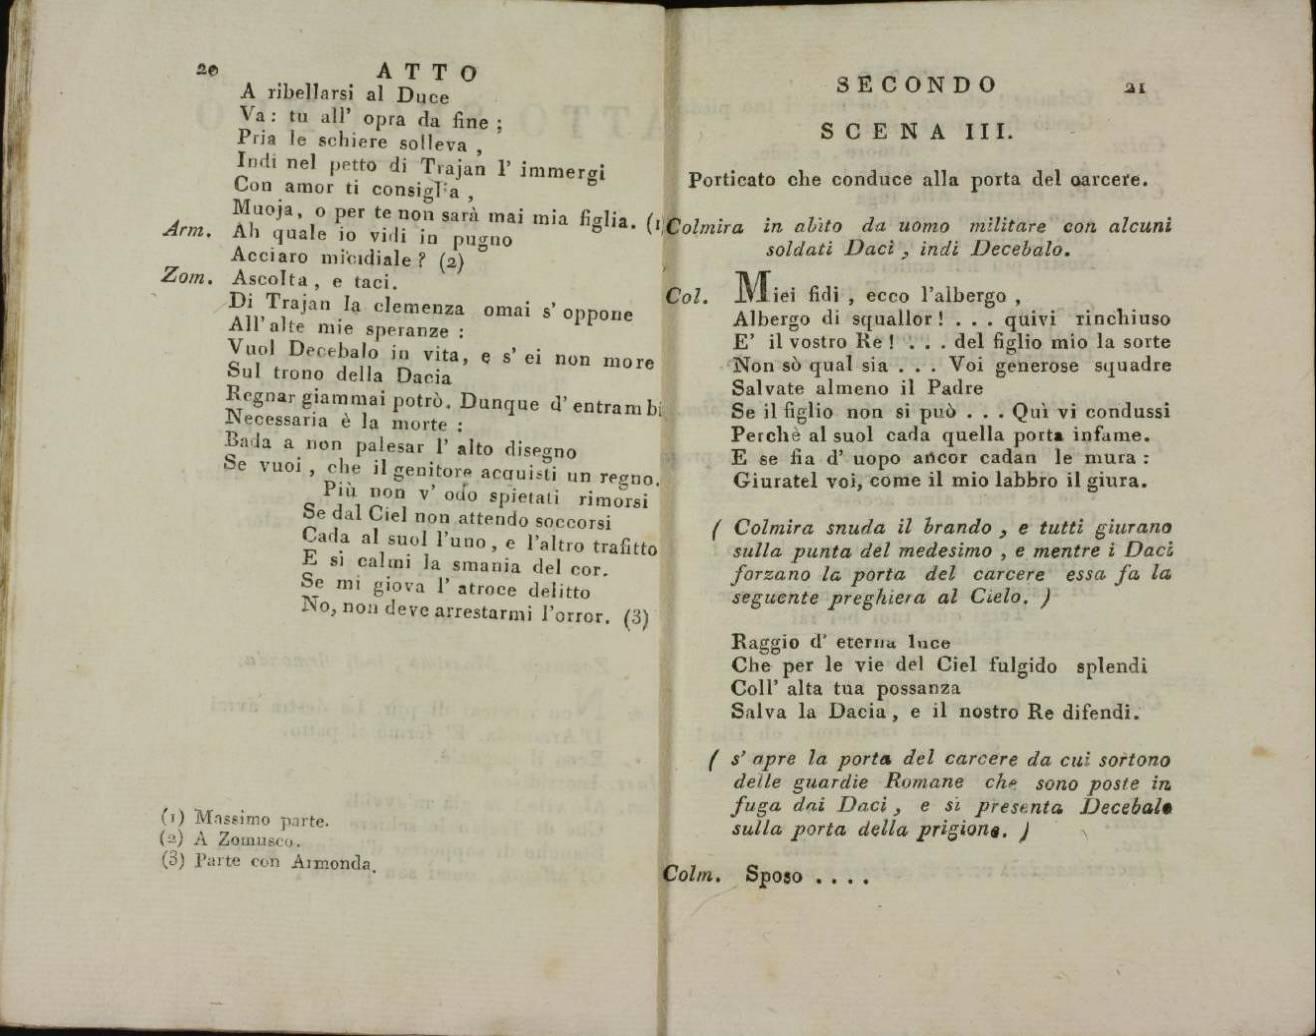 20 ATTO
A ribellarsi al Duce
Va: tu all' opra da fine ;
Pria le schiere solleva ,
Indi nel petto di Trajan l' immergi
Con amor ti consiglia ,
Muoja, o per te non sarà mai mia figlia. (1)
Arm. Ah quale io vidi in pugno
Acciaro micidiale ? (2)
Zom. Ascolta , e taci.
Di Trajan la clemenza omai s' oppone
All'alte mie speranze :
Vuol Decebalo in vita, e s' ei non more
Sul trono della Dacia
Regnar giammai potrò. Dunque d' entrambi
Necessaria è la morte :
Bada a non palesar l' alto disegno
Se vuoi , che il genitore acquisti un regno.
Più non v' odo spietati rimorsi
Se dal Ciel non attendo soccorsi
Cada al suol l'uno , e l'altro trafitto
E si calmi la smania del cor.
Se mi giova l' atroce delitto
No, non deve arrestarmi l'orror. (3)
(1) Massimo parte.
(2) A Zomusco.
(3) Parte con Armonda.
SECONDO 21
SCENA III.
Porticato che conduce alla porta del carcere.
Colmira in abito da uomo militare con alcuni
soldati Daci , indi Decebalo.
Col. Miei fidi , ecco l'albergo ,
Albergo di squallor ! . . . quivi rinchiuso
E' il vostro Re ! . . . del figlio mio la sorte
Non sò qual sia . . . Voi generose squadre
Salvate almeno il Padre
Se il figlio non si può . . . Quì vi condussi
Perchè al suol cada quella porta infame.
E se fia d' uopo ancor cadan le mura :
Giuratel voi, come il mio labbro il giura.
( Colmira snuda il brando , e tutti giurano
sulla punta del medesimo , e mentre i Daci
forzano la porta del carcere essa fa la
seguente preghiera al Cielo. )
Raggio d' eterna luce
Che per le vie del Ciel fulgido splendi
Coll' alta tua possanza
Salva la Dacia , e il nostro Re difendi.
( s' apre la porta del carcere da cui sortono
delle guardie Romane che sono poste in
fuga dai Daci , e si presenta Decebalo
sulla porta della prigione. )
Colm. Sposo . . . .